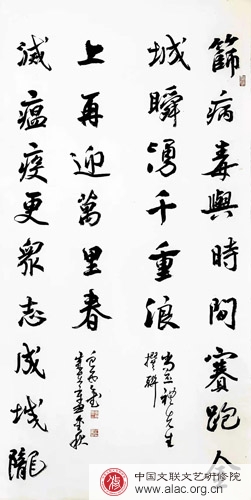 篩病毒與時間賽跑人
城瞬湧千重浪
先生
撰聯
滅瘟疫更眾志成城隴
上再迎萬里春
中国文联文艺研修院
www.alac.org.cn